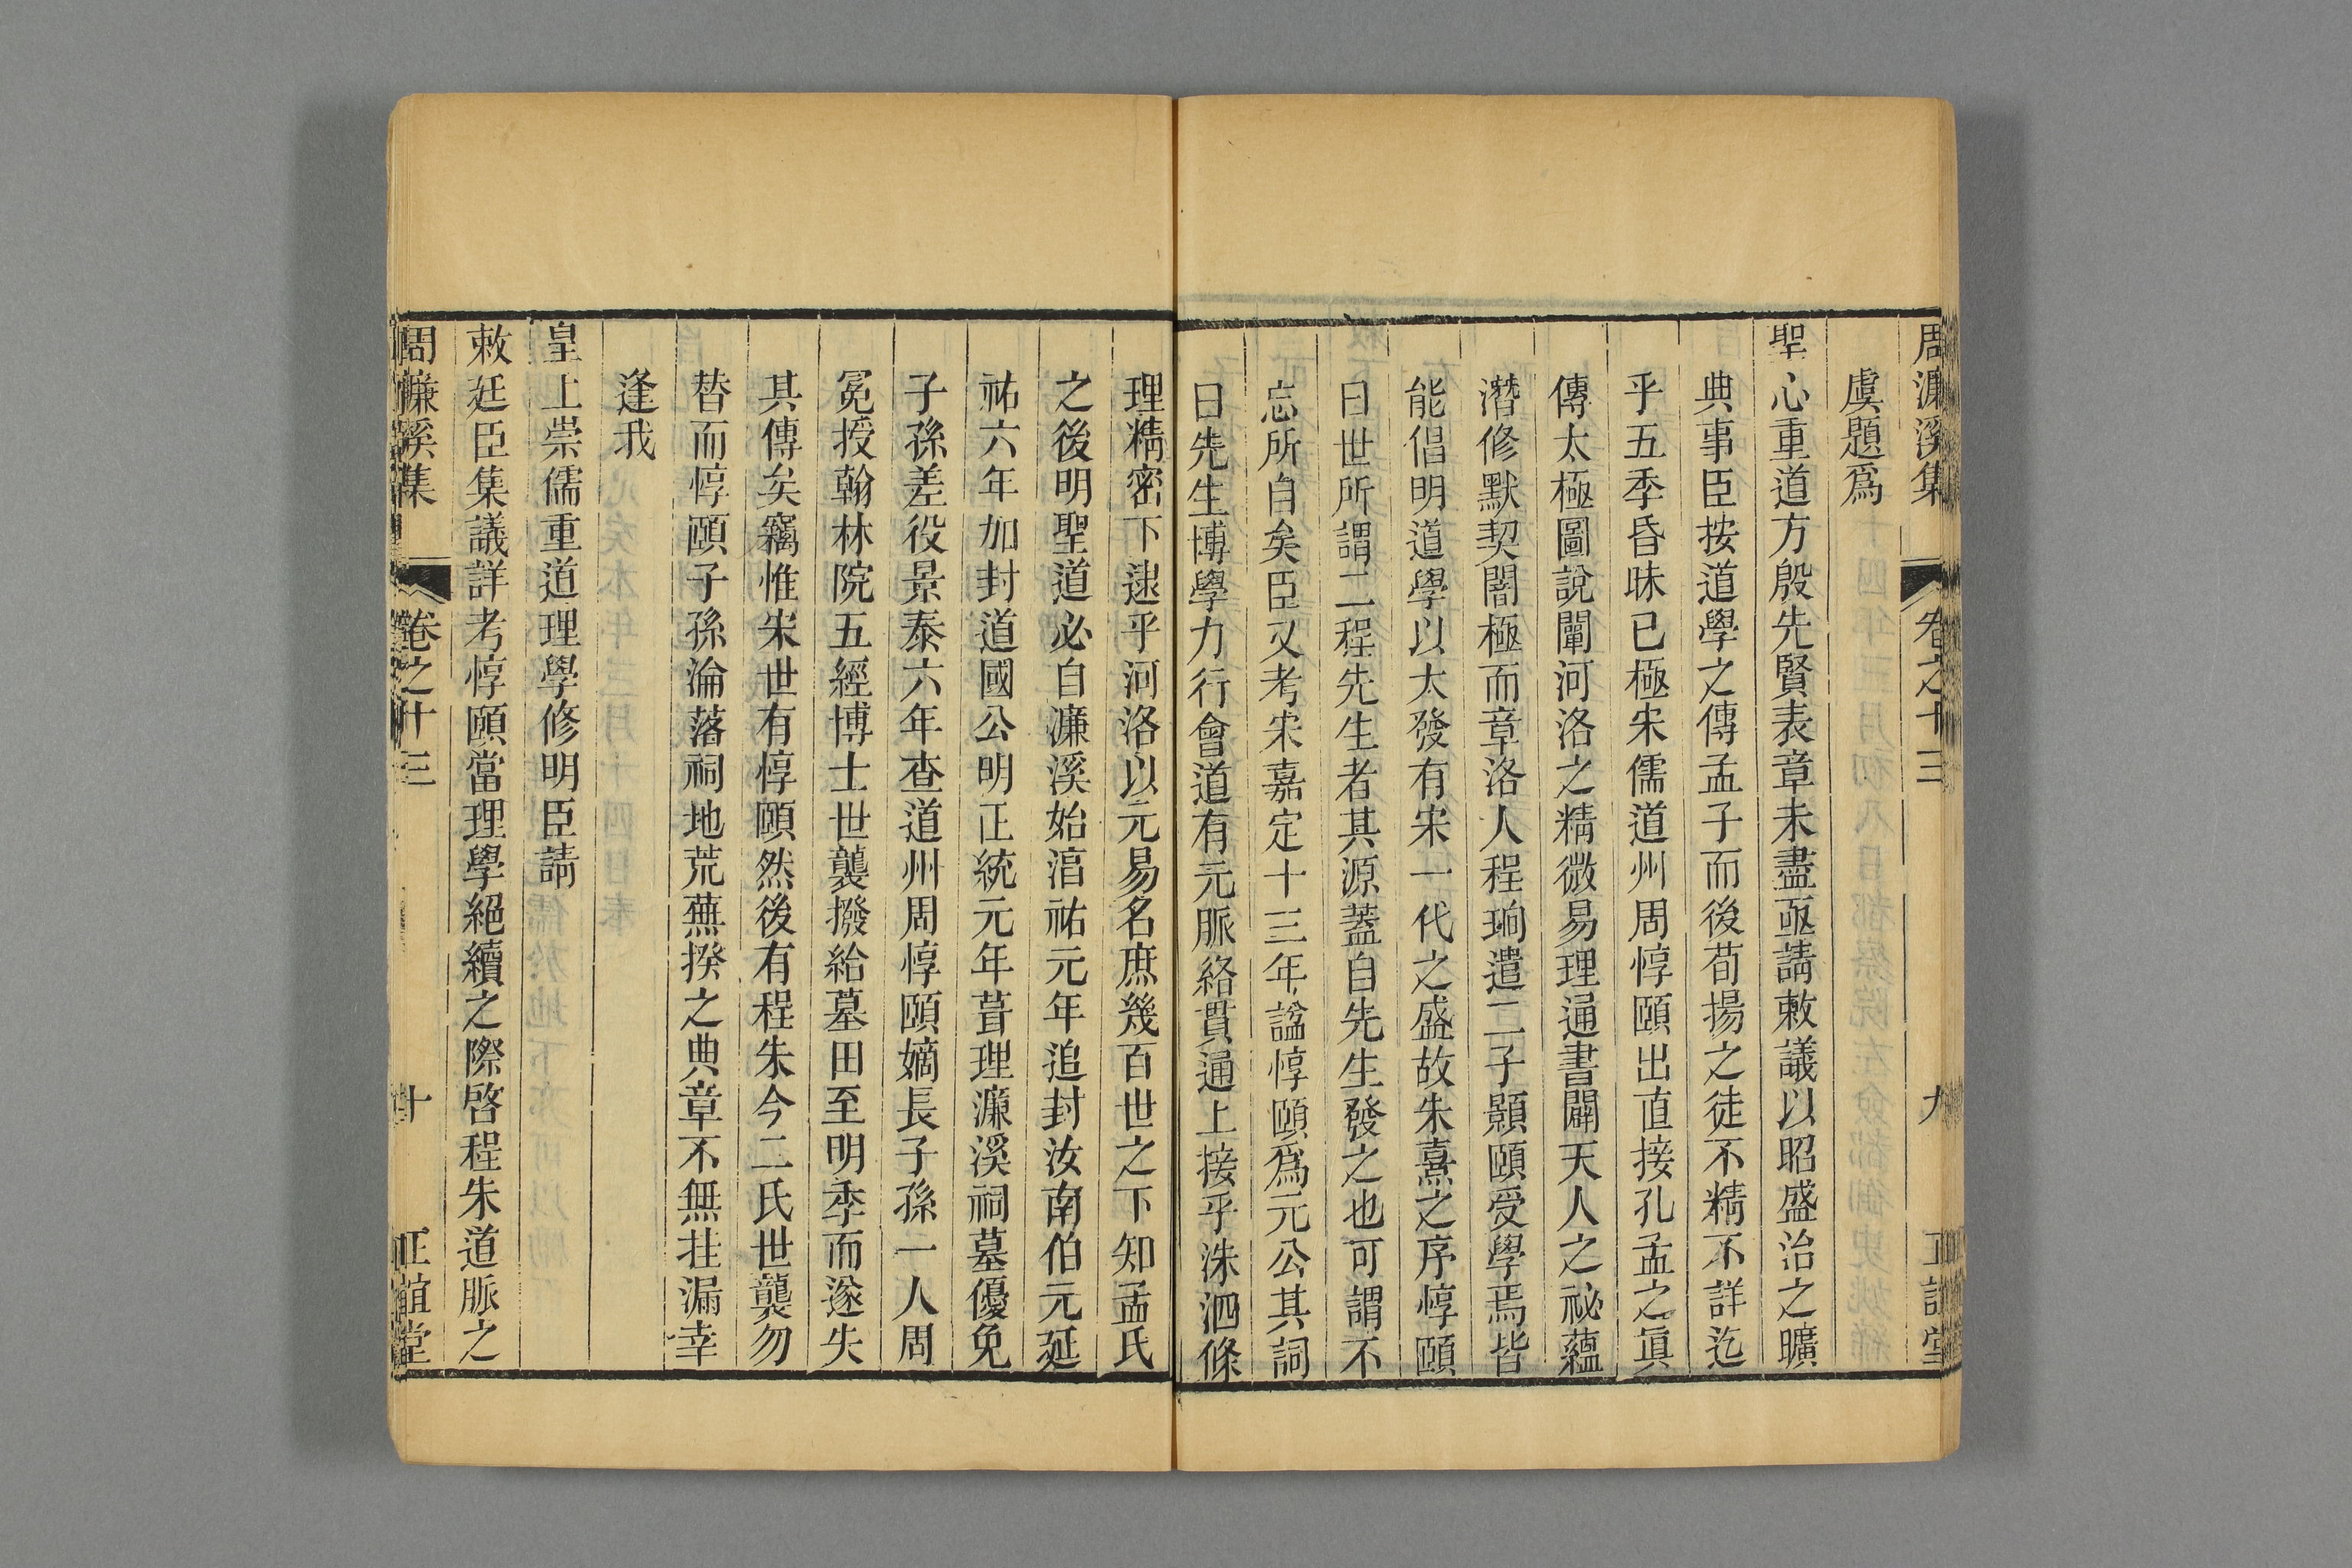 周濂溪集 卷之十三 九 正誼堂
虞題爲
聖心重道方殷先賢表章未盡亟請敕議以昭盛治之曠
典事臣按道學之傳孟子而後荀揚之徒不精不詳迄
乎五季昏昧已極宋儒道州周惇頤出直接孔孟之眞
傳太極圖說闡河洛之精微易理通書闢天人之祕蘊
潛修默契闇極而章洛人程珦遣二子顥頤受學焉皆
能倡明道學以大發有宋一代之盛故朱熹之序惇頤
曰世所謂二程先生者其源蓋自先生發之也可謂不
忘所自矣臣又考宋嘉定十三年諡惇頤爲元公其詞
曰先生博學力行會道有元脈絡貫通上接乎洙泗條
理精密下逮乎河洛以元易名庶幾百世之下知孟氏
之後明聖道必自濂溪始淯祐元年追封汝南伯元延
祐六年加封道國公明正統元年葺理濂溪祠墓優免
子孫差役景泰六年查道州周惇頤嫡長子孫一人周
冕授翰林院五經博士世襲撥給墓田至明季而遂失
其傳矣竊惟宋世有惇頤然後有程朱今二氏世襲勿
替而惇頤子孫淪落祠地荒蕪揆之典章不無挂漏幸
逢我
皇上崇儒重道理學修明臣請
敕廷臣集議詳考惇頤當理學絕續之際啓程朱道脈之
周濂溪集 卷之十三 十 正誼堂